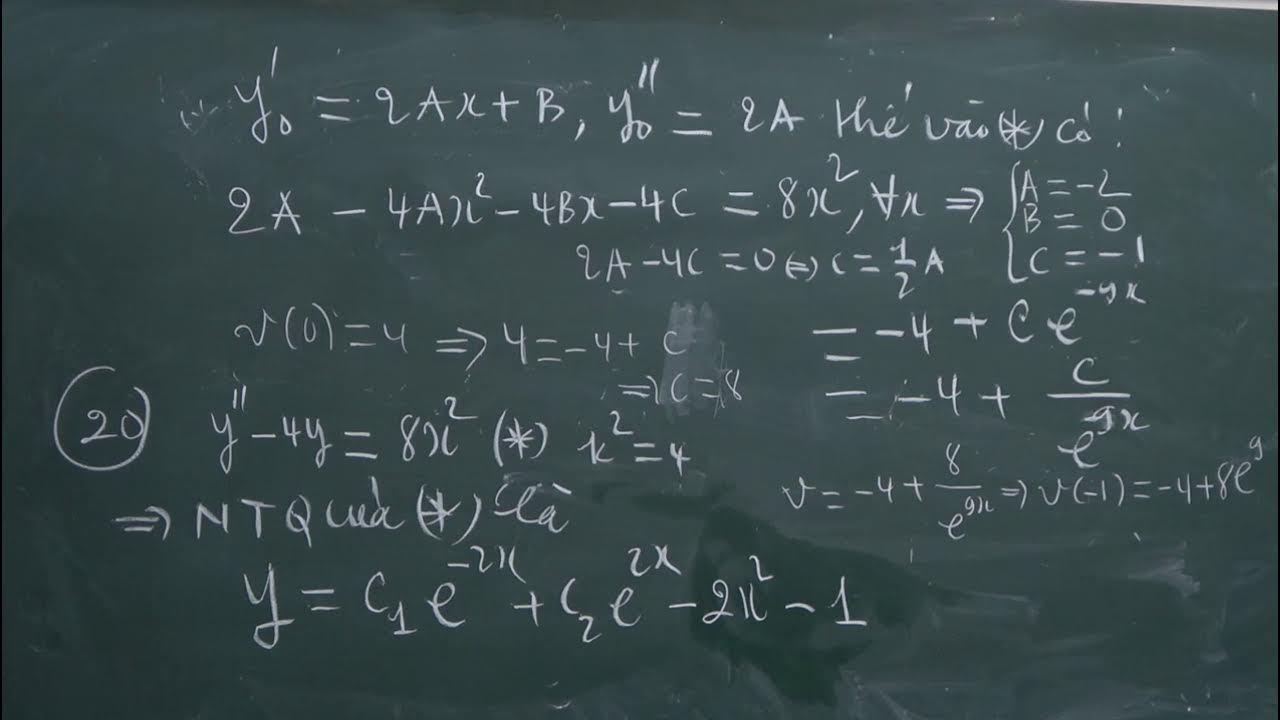 y₀' = 2Ax + B, y₀'' = 2A thế vào (*) có:
2A − 4Ax² − 4Bx − 4C = 8x², ∀x ⇒ { A = −2
B = 0
2A − 4C = 0 ⇔ C = 1/2 A { C = −1
v(0) = 4 ⇒ 4 = −4 + C
= −4 + C e^(−9x)
⇒ C = 8
= −4 + C/e^(9x)
20 y'' − 4y = 8x² (*) k² = 4
v = −4 + 8/e^(9x) ⇒ v(−1) = −4 + 8e⁹
⇒ NTQ của (*) là
y = C₁e^(−2x) + C₂e^(2x) − 2x² − 1